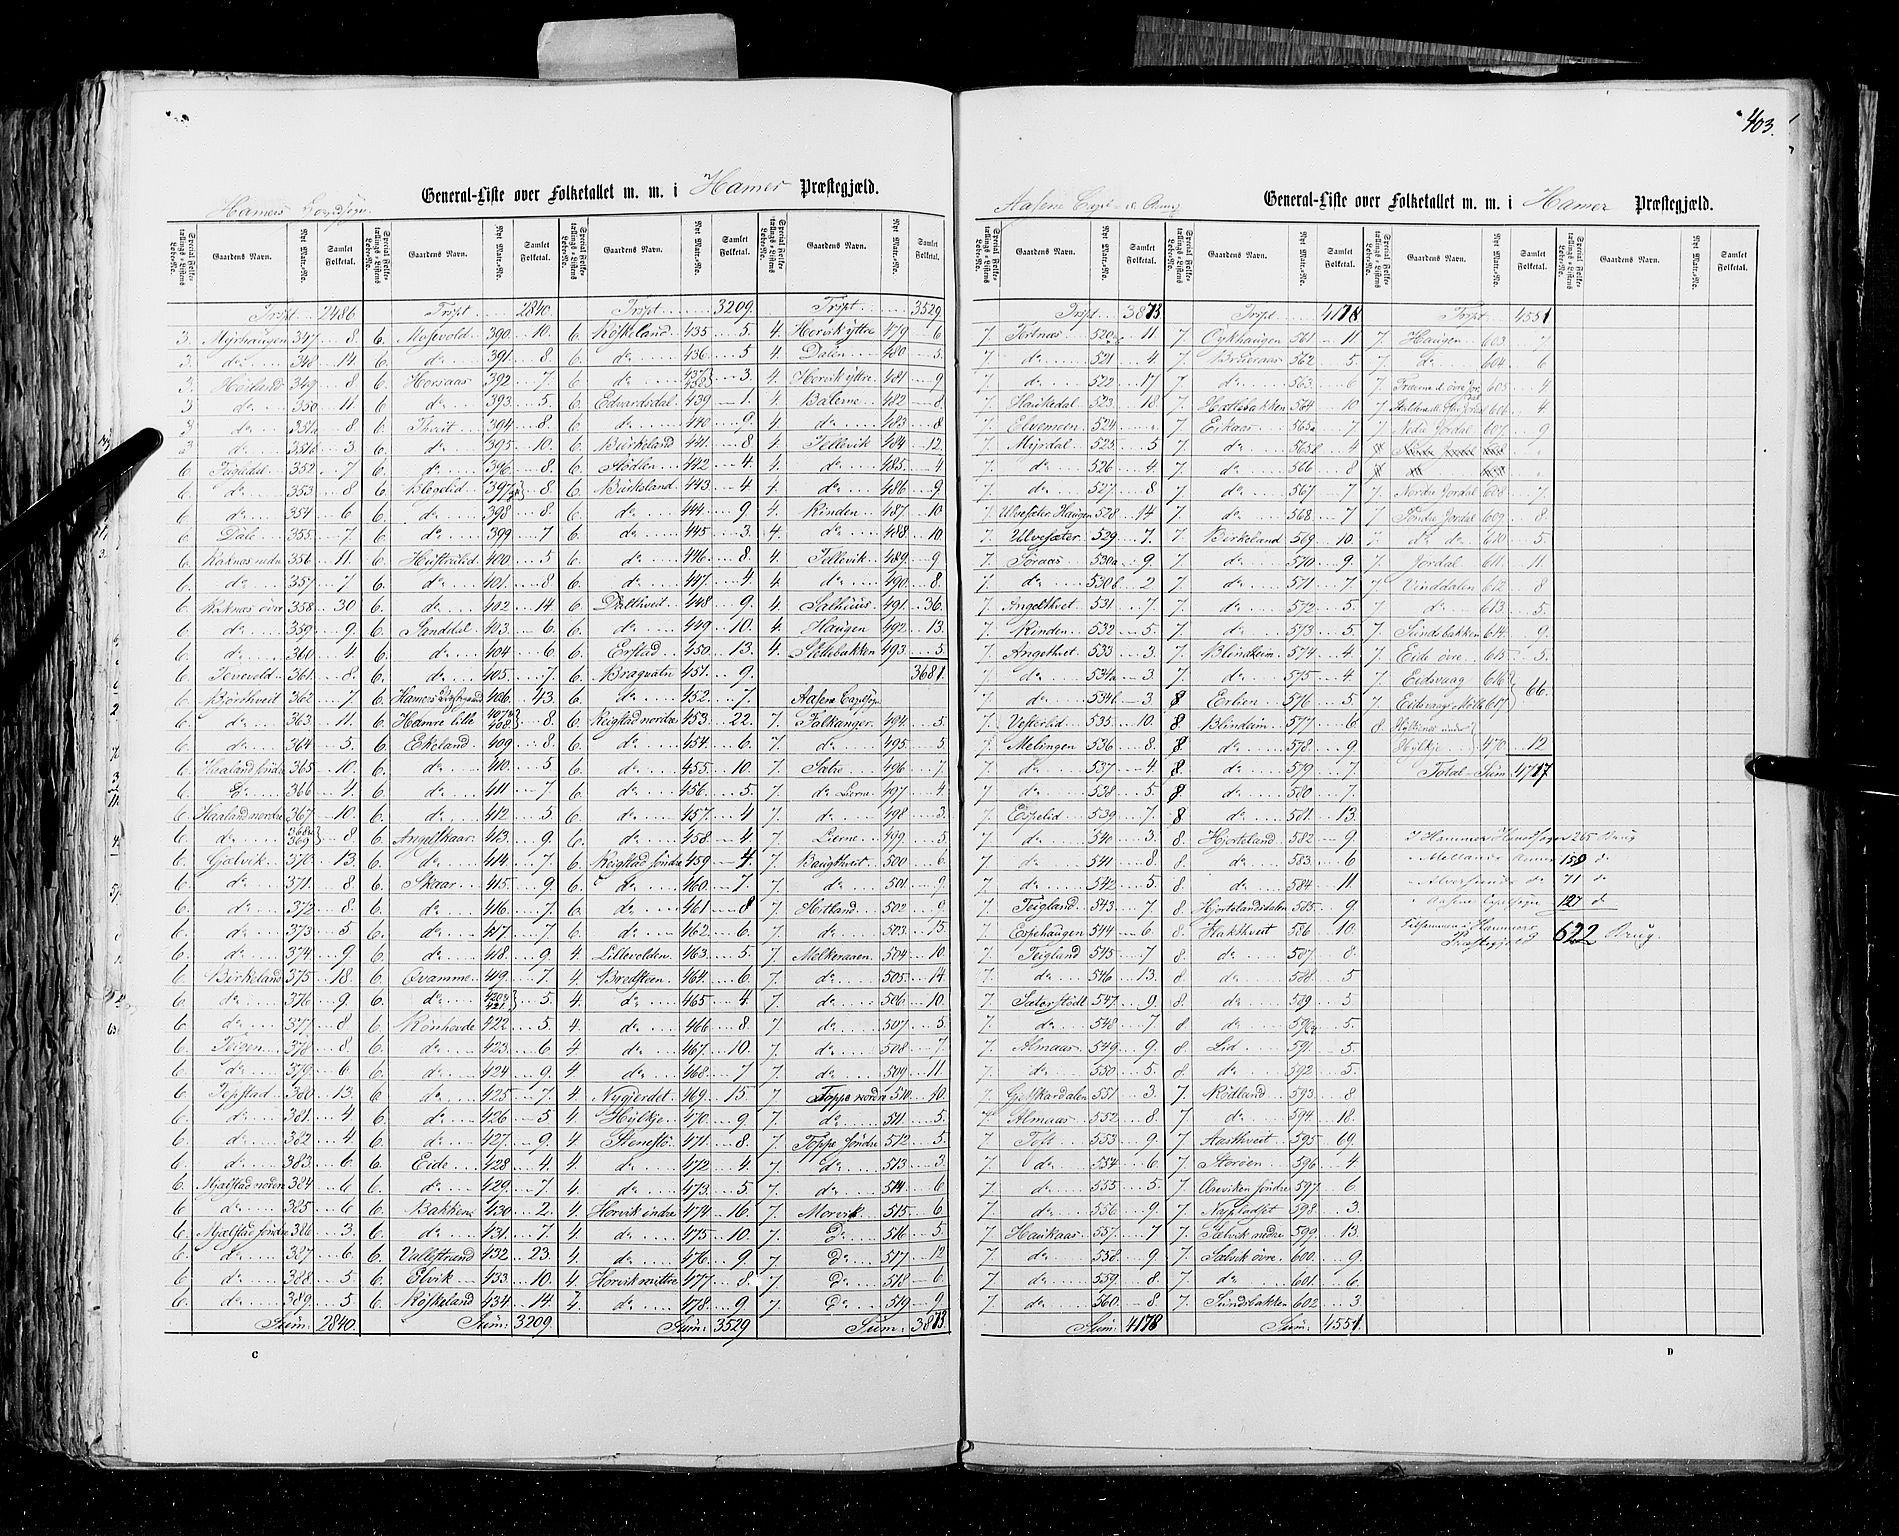 403.
General-Liste over Folketallet m. m. i Hamer Præstegjæld.
Hamers Sogn
Special Folketællings-Listens Løbe-No. Gaardens Navn. Nyt Matr.-No. Samlet Folketal.
Trspt 2486
3. Myrhaugen 347 8
3. do 348 14
3. Höiland 349 8
3 do 350 11
3 do 351a 8
3 do 351b 3
6 352 7
6. do 353 8
6. do 354 6
6. Dale 355 7
6. Raknes nedre 356 11
6. do 357 7
6. Raknes övre 358 30
6. do 359 9
6. do 360 4
6. Tevevold 361 8
6. Börthveit 362 7
6. do 363 11
6. do 364 5
6. Haaland söndre 365 10
6. Do 366 4
6. Haaland nordre 367 10
6. do 368 369 8
6. Gjelvik 370 13
6. do 371 8
6. do 372 8
6. do 373 5
6. do 374 9
6. Birkeland 375 18
6. do 376 9
6. do 377 8
6. Teigen 378 8
6. do 379 6
6. Tepstad 380 13
6. do 381 4
6. do 382 4
6. do 383 6
6. Mjelstad nordre 384 6
6. do 385 6
6. Mjelstad söndre 386 3
6. do 387 6
6. do 388 5
6. do 389 5
Sum: 2840
Trspt 2840
6. Mosevold 390 10
6. do 391 8
6. Horsaas 392 7
6 do 393 5
6 Thveit 394 8
6 do 395 10
6 do 396 8
6. 397 8
6. do 398 8
6. do 399 7
6. Hustrulid 400 5
6. do 401 8
6. do 402 14
6. Sanddal 403 6
6. do 404 6
6. do 405 7
6. Hamers Præstegaard 406 43
6. Hamre lille 407 408 8
6. Eikeland 409 8
6. do 410 5
6. do 411 7
6. do 412 5
6. Angelskaar 413 9
6. do 414 7
6. Skaar 415 9
6. do 416 7
6. do 417 7
6. do 418 9
6. Qvamme 419 7
6. do 420 421 5
6. Rönhovde 422 5
6. do 423 6
6. do 424 9
6. do 425 7
6. do 426 5
6. do 427 9
6. Eide 428 4
6. do 429 7
6. Bakken 430 2
6. do 431 7
6. Vallestrand 432 23
6. Elvik 433 10
6. Röskeland 434 14
Sum: 3209
Trspt 3209
6. Röskeland 435 5
6. do 436 5
6. do 437 438 3
6. Edvardsdal 439 1
6. do 440 9
6. Birkeland 441 8
6. Stödlen 442 4
6. Birkeland 443 4
6. do 444 9
6. do 445 3
6. do 446 8
6. do 447 4
6. Dalthveit 448 9
6. do 449 10
6. Erstad 450 13
6. 451 9
6. do 452 7
6. Reigstad nordre 453 22
6. do 454 6
6. do 455 10
6. do 456 5
6. do 457 4
6. do 458 4
6. Reigstad söndre 459 4
6. do 460 7
6. do 461 8
6. do 462 6
4. Lillevolden 463 5
4. Bredsteen 464 6
4. do 465 4
4. do 466 8
4. do 467 10
4. do 468 7
4. Nygierdet 469 15
4. Hylkje 470 9
4. Stenestö 471 8
4. do 472 4
4. do 473 5
4. Horvik indre 474 16
4. do 475 10
4. do 476 9
4. Horvik midtre 477 8
4. do 478 9
Sum: 3529
Trspt 3529
4. Horvik yttre 479 6
4. Dalen 480 5
4. Horvik yttre 481 9
4. 482 8
4. do 483 8
4. Tellevik 484 12
4. do 485 4
4. do 486 9
4. Rinden 487 10
4. do 488 10
4. Tellevik 489 9
4. do 490 8
4. Salhuus 491 36
4. Haugen 492 13
4. Stölebakken 493 5
3681
Aasene Capelsogn
7. Falkanger 494 5
7. do 495 5
7. Sætre 496 7
7. do Lierne 497 4
7. do 498 3
7. Lierne 499 5
7. Haugthveit 500 6
7. do 501 9
7. Hitland 502 9
7. do 503 15
7. Melkeraaen 504 10
7. do 505 14
7. do 506 10
7. do 507 5
7. do 508 7
7. do 509 11
7. Toppe nordre 510 10
7. do 511 5
7. Toppe söndre 512 5
7. do 513 3
7. do 514 6
7. Morvik 515 6
7. Do 516 5
7. Do 517 12
7. Do 518 6
7. Do 519 9
Sum: 3873
C
General-Liste over Folketallet m. m. i Hamer Præstegjæld.
Aasene Capel
Special Folketællings-Listens Løbe-No. Gaardens Navn. Nyt Matr.-No. Samlet Folketal.
Trspt 3873
7. Tertnæs 520 11
7. do 521 4
7. do 522 17
7. Haukedal 523 18
7. Elvemoen 524
7. Myrdal 525 5
7. do 526 4
7. do 527 8
7. Ulvesæter Haugen 528 14
7. Ulvesæter 529 7
7. Söraas 530a 9
7. do 530b 2
7. Angelthvet 531 7
7. Rinden 532 5
7. Angelthvet 533 3
7. do 534a 3
7. do 534b 3
7. Vesterlid 535 10
7. Melingen 536 8
7. do 537 4
7. do 538 5
7. Espelid 539 7
7. do 540 3
7. do 541 8
7. do 542 5
7. Teigland 543 7
7. Espehaugen 544 6
7. Teigland 545 7
7. do 546 13
7. Sæterstödl 547 9
7. do 548 7
7. Almaas 549 9
7. do 550 5
7. Gjeskardalen 551 3
7. Almaas 552 8
7. Toll 553 9
7. do 554 6
7. do 555 5
7. do 556 9
7. Haukaas 557 7
7. do 558 9
7. do 559 8
7. do 560 8
Sum: 4178
Trspt 4178
7. 561 11
7. 562 5
7. do 563 6
7. Hatlebakken 564 10
7. Eskaas 565a 7
7. do 565b 4
7. do 566 8
7. do 567 7
7. do 568 7
7. Birkeland 569 10
7. do 570 9
7. do 571 7
7. do 572 5
7. do 573 5
7. Blindheim 574 4
7. do 575 4
8 Erlien 576 5
8 Blindeim 577 6
8 do 578 9
8. do 579 7
8 do 580 7
8 do 581 13
8. Hjorteland 582 9
8. do 583 6
8. do 584 11
8. Hjortelandsdalen 585 9
8. Flakthveit 586 10
8. do 587 8
8. do 588 5
8. do 589 3
8 do 590 5
8. Lid 591 5
8. do 592 5
7. Rödland 593 8
7. do 594 18
7. Aasthveit 595 69
7. Storöen 596 4
7. söndre 597 6
7. 598 3
7. Sælvik nedre 599 13
7. Sælvik övre 600 9
7. do 601 6
7. Sundsbakken 602 3
Sum: 4551
Trspt 4551
7 Haugen 603 7
7 do 604 6
7 605 4
7 606 4
7 Nedre Jordal 607 9
7. Nordre Jordal 608 7
7. Söndre Jordal 609 8
7. do do 610 5
7. Jordal 611 11
7. Vinddalen 612 8
7 do 613 5
7. Sundsbakken 614 9
7. Eide övre 615 5
7. Eidsvaag 616
7. Eidsvaags Mölle 617 66
8. Hylkenes under Hylkje 470 12
Total-Sum 4717
I Hammer Hovedsogn 265 Brug
" Mellands Annex 158 do
" Alversunds do 71 do
" Aasene Capelsogn 127 do
Tilsammen i Hammers Præstegjeld 622 Brug.
D